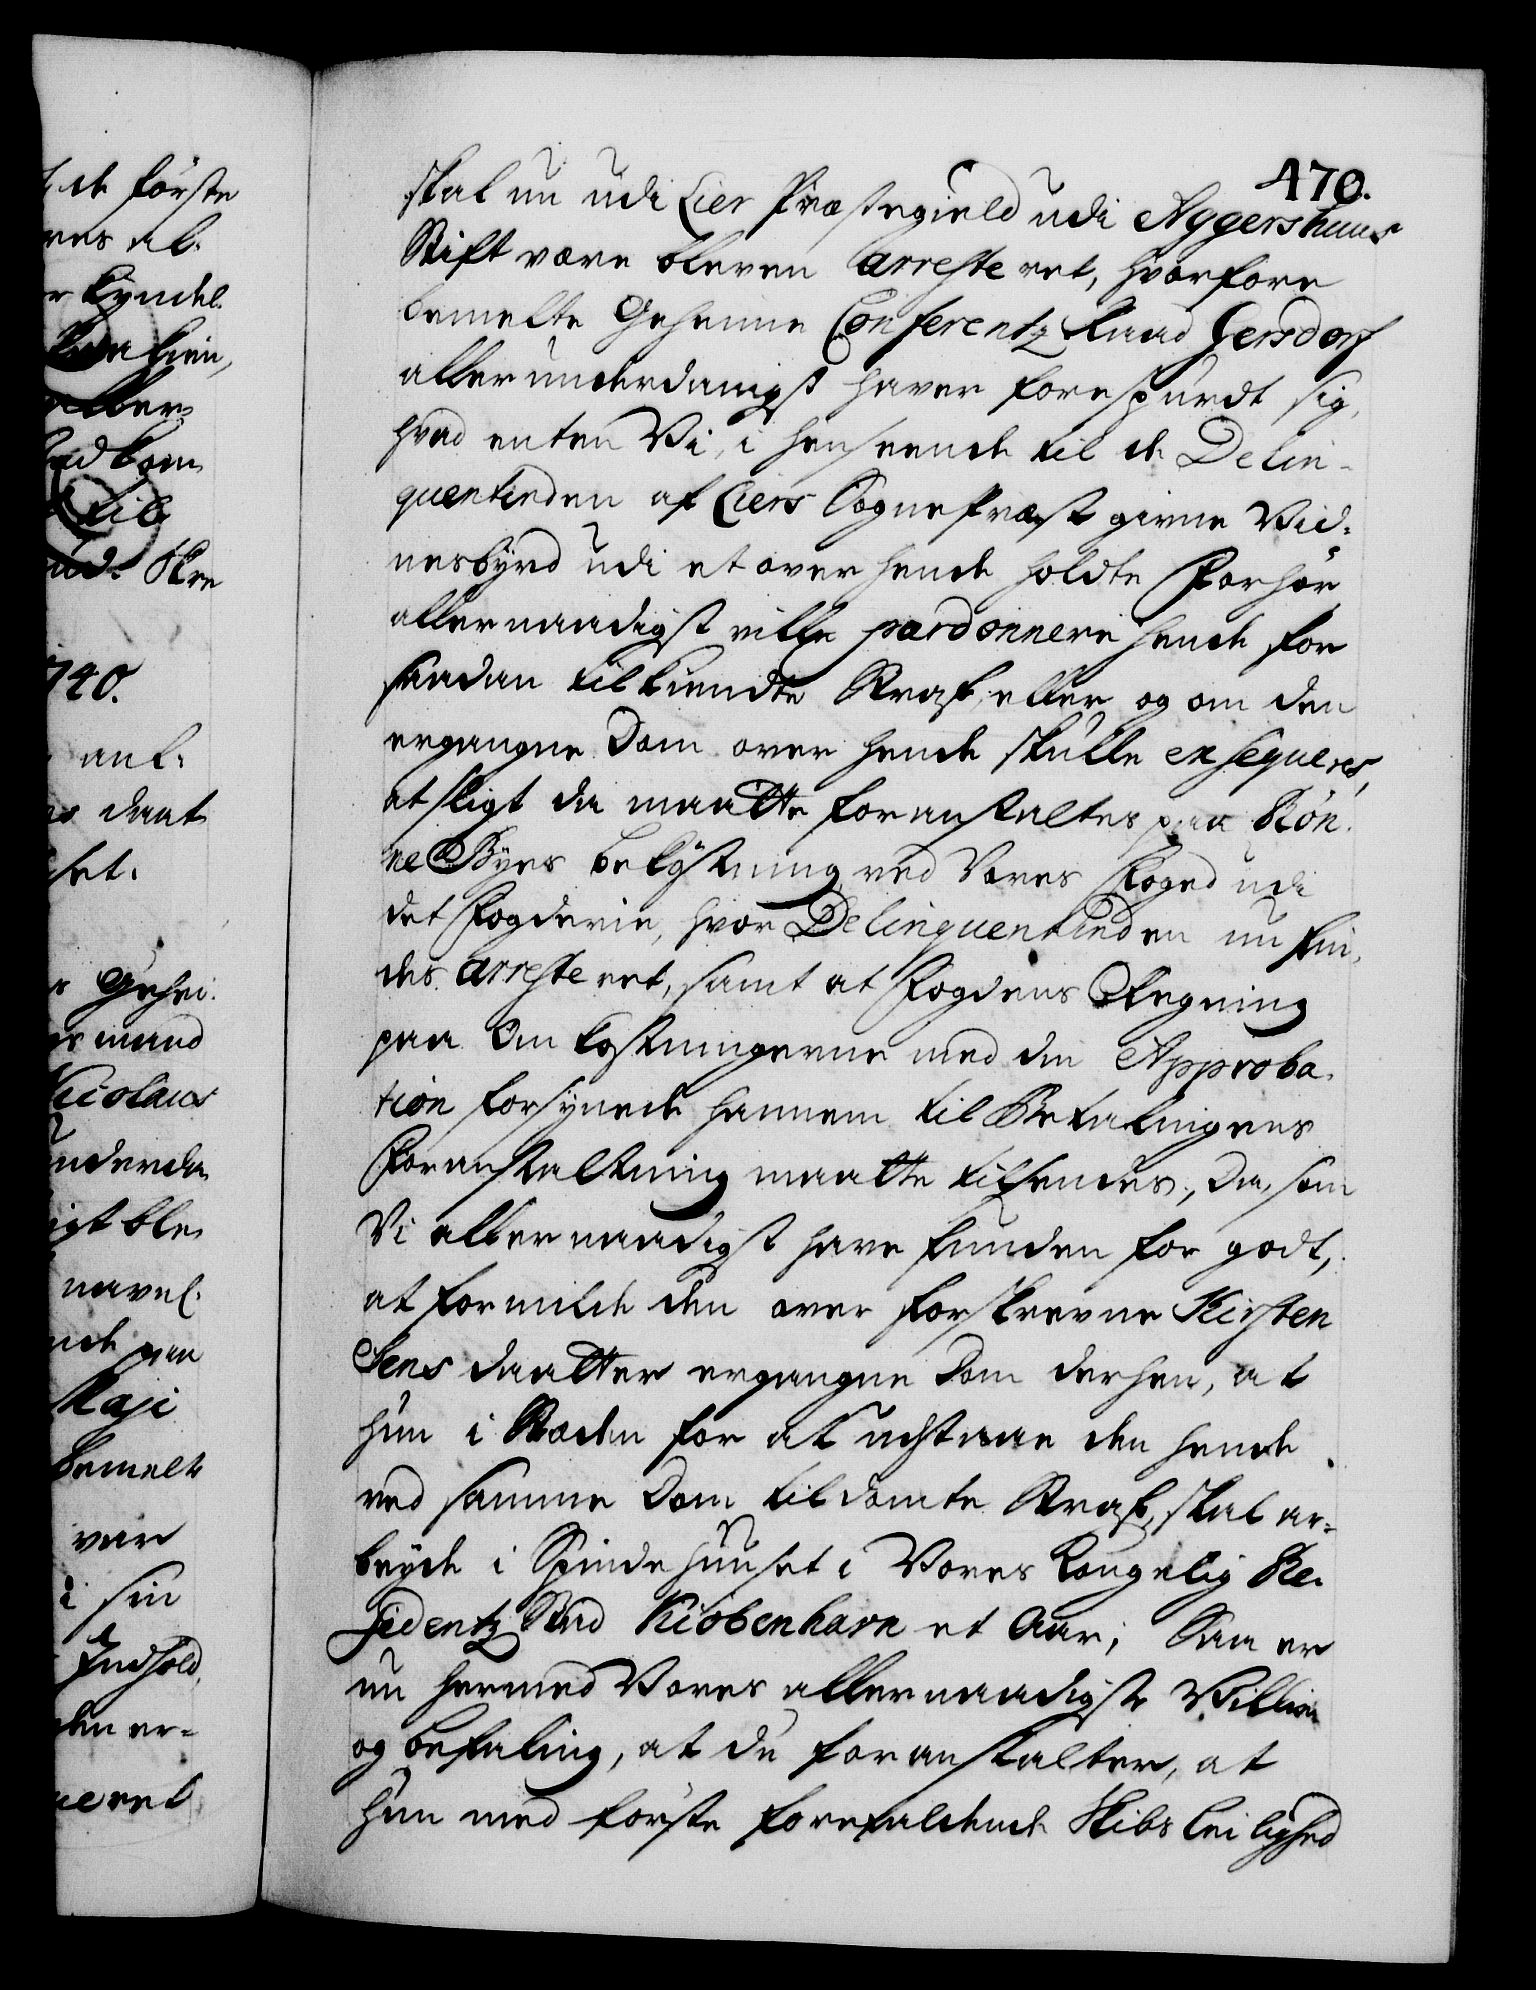 470.
skal nu udi Lier Præstegield udi Aggershuus
Stift være bleven arresteret, hvorfore
bemelte Geheime Conferentz Raad Gersdorf
allerunderdanigst haver forespurdt sig,
hvad enten Vi, i henseende til de Delin-
quentinden af Liers Sognepræst givne Vid-
nesbyrd udi et over hende holdte Forhør,
allernaadigst ville pardonnere hende for
saadan tilkiendte Straf, eller og om den
ergangne Dom over hende skulle exseqveres,
at sligt da maatte foranstaltes paa Rön-
ne Byes bekostning ved Vores Foged udi
det Fogderie, hvor Delinquentinden nu fin-
des arresteret, samt at Fogdens Regning
paa Omkostningerne med din Approba-
tion forsynede hannem til Betalingens
Foranstaltning maatte tilsendes; Da, som
Vi allernaadigst have funden for godt,
at formilde den over forskrevne Kirsten
Jens daatter ergangne Dom derhen, at
hun i Stæden for at udstaae den hende
ved samme Dom tildømte Straf, skal ar-
beyde i Spindehuuset i Vores Kongelig Re-
sidentz Stad Kiøbenhavn et Aar; Saa er
nu hermed Vores allernaadigste Villie
og befaling, at du foranstalter, at
hun med første forefaldende Skibs leilighed
de første
Nicolaus
1740.
daat
Gehei-
mand
underda-
navnl.
paa
Maji
bemelte
var
i sin
Indhold,
den er-